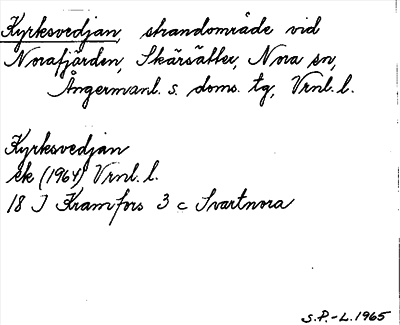 Kyrksvedjan, strandområde vid
Norafjärden, Skärsätter, Nora sn,
Ångermanl. s. doms. tg, Vrnl. l.
Kyrksvedjan
ek (1964) Vrnl. l.
18 J Kramfors 3 c Svartnora
S.P.-L. 1965